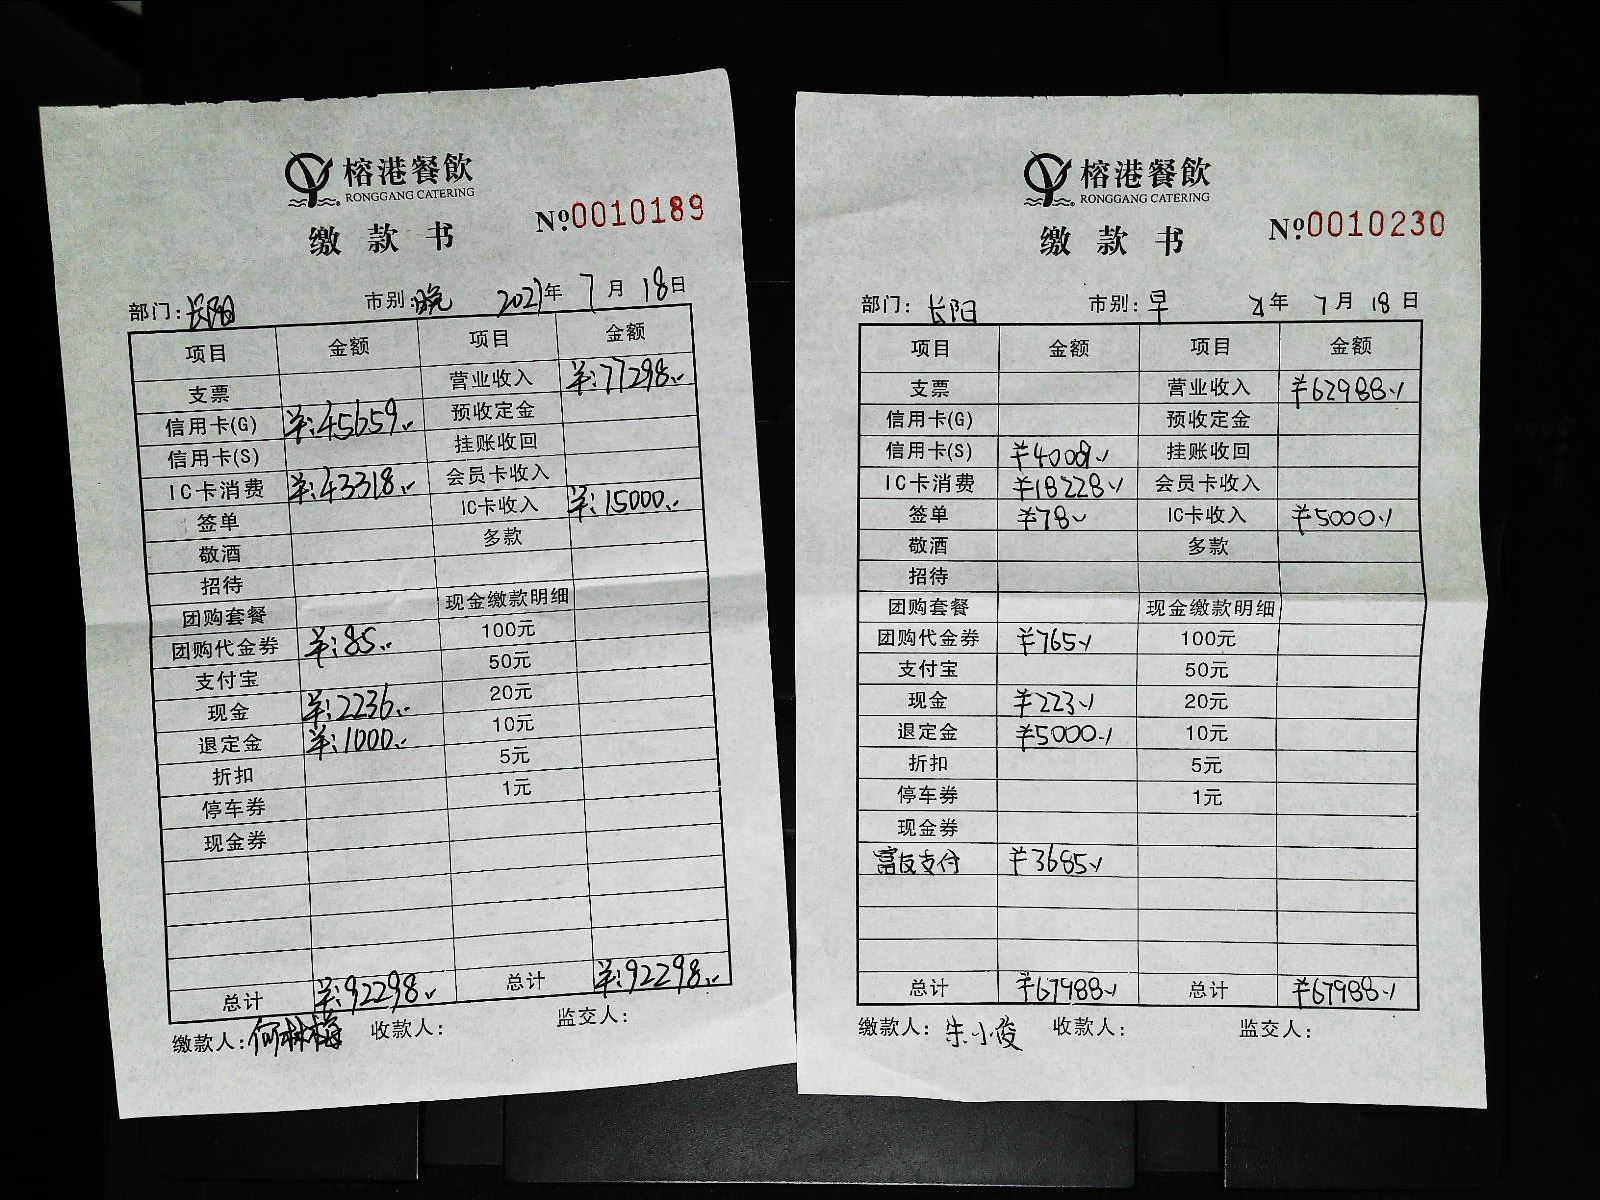 榕港餐飲
RONGGANG CATERING
缴款书
№0010189
部门:长阳 市别:晚 2021年7月18日
项目 金额 项目 金额
支票 营业收入 ¥:77298.
信用卡(G) ¥:45659. 预收定金
信用卡(S) 挂账收回
IC卡消费 ¥:43318. 会员卡收入
签单 IC卡收入 ¥:15000.
敬酒 多款
招待
团购套餐 现金缴款明细
团购代金券 ¥:85. 100元
支付宝 50元
现金 ¥:2236. 20元
退定金 ¥:1000. 10元
折扣 5元
停车券 1元
现金券
总计 ¥:92298. 总计 ¥:92298.
缴款人:何林梅 收款人: 监交人:
榕港餐飲
RONGGANG CATERING
缴款书
№0010230
部门:长阳 市别:早 21年7月18日
项目 金额 项目 金额
支票 营业收入 ¥62988
信用卡(G) 预收定金
信用卡(S) ¥40009 挂账收回
IC卡消费 ¥18228 会员卡收入
签单 ¥78 IC卡收入 ¥5000
敬酒 多款
招待
团购套餐 现金缴款明细
团购代金券 ¥765 100元
支付宝 50元
现金 ¥223 20元
退定金 ¥5000 10元
折扣 5元
停车券 1元
现金券
富友支付 ¥3685
总计 ¥67988 总计 ¥67988
缴款人:朱小俊 收款人: 监交人: